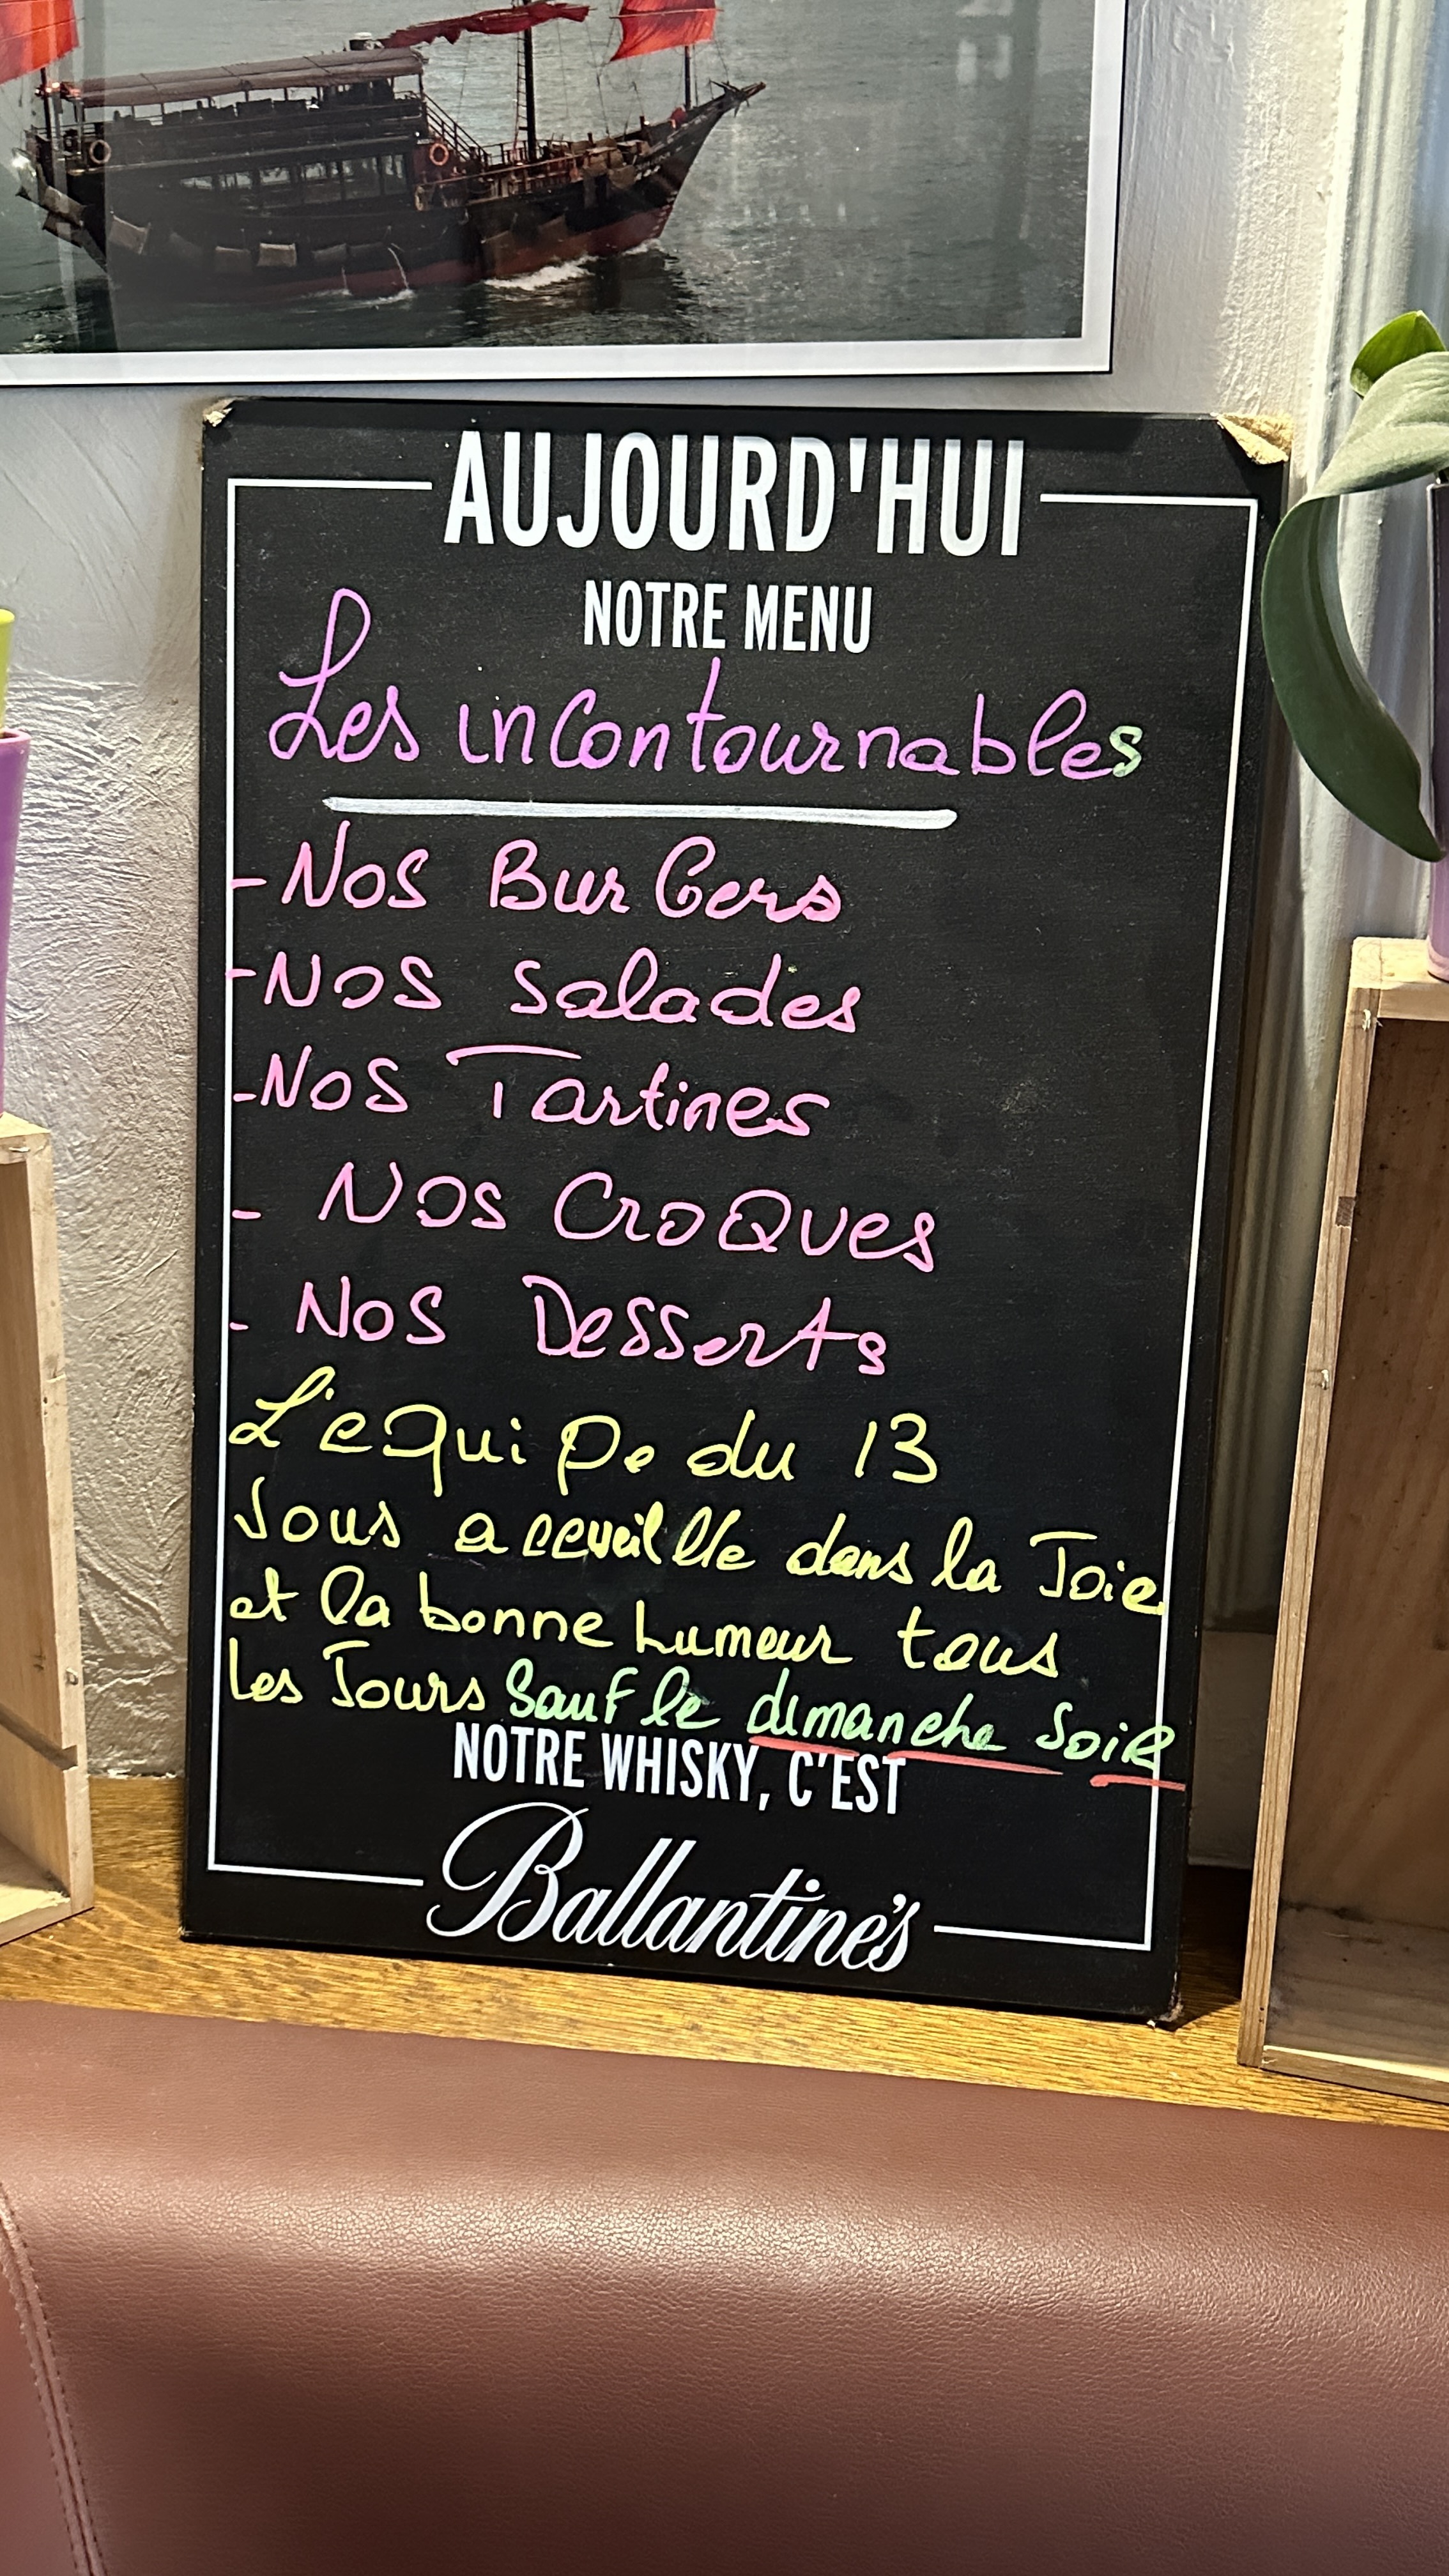 AUJOURD'HUI
NOTRE MENU
Les incontournables
- Nos BurGers
- Nos Salades
- Nos Tartines
- Nos CroQues
- Nos Desserts
L'equipe du 13
Vous acceuille dans la Joie
et la bonne humeur tous
les Jours Sauf le dimanche soiR
NOTRE WHISKY, C'EST
Ballantine's